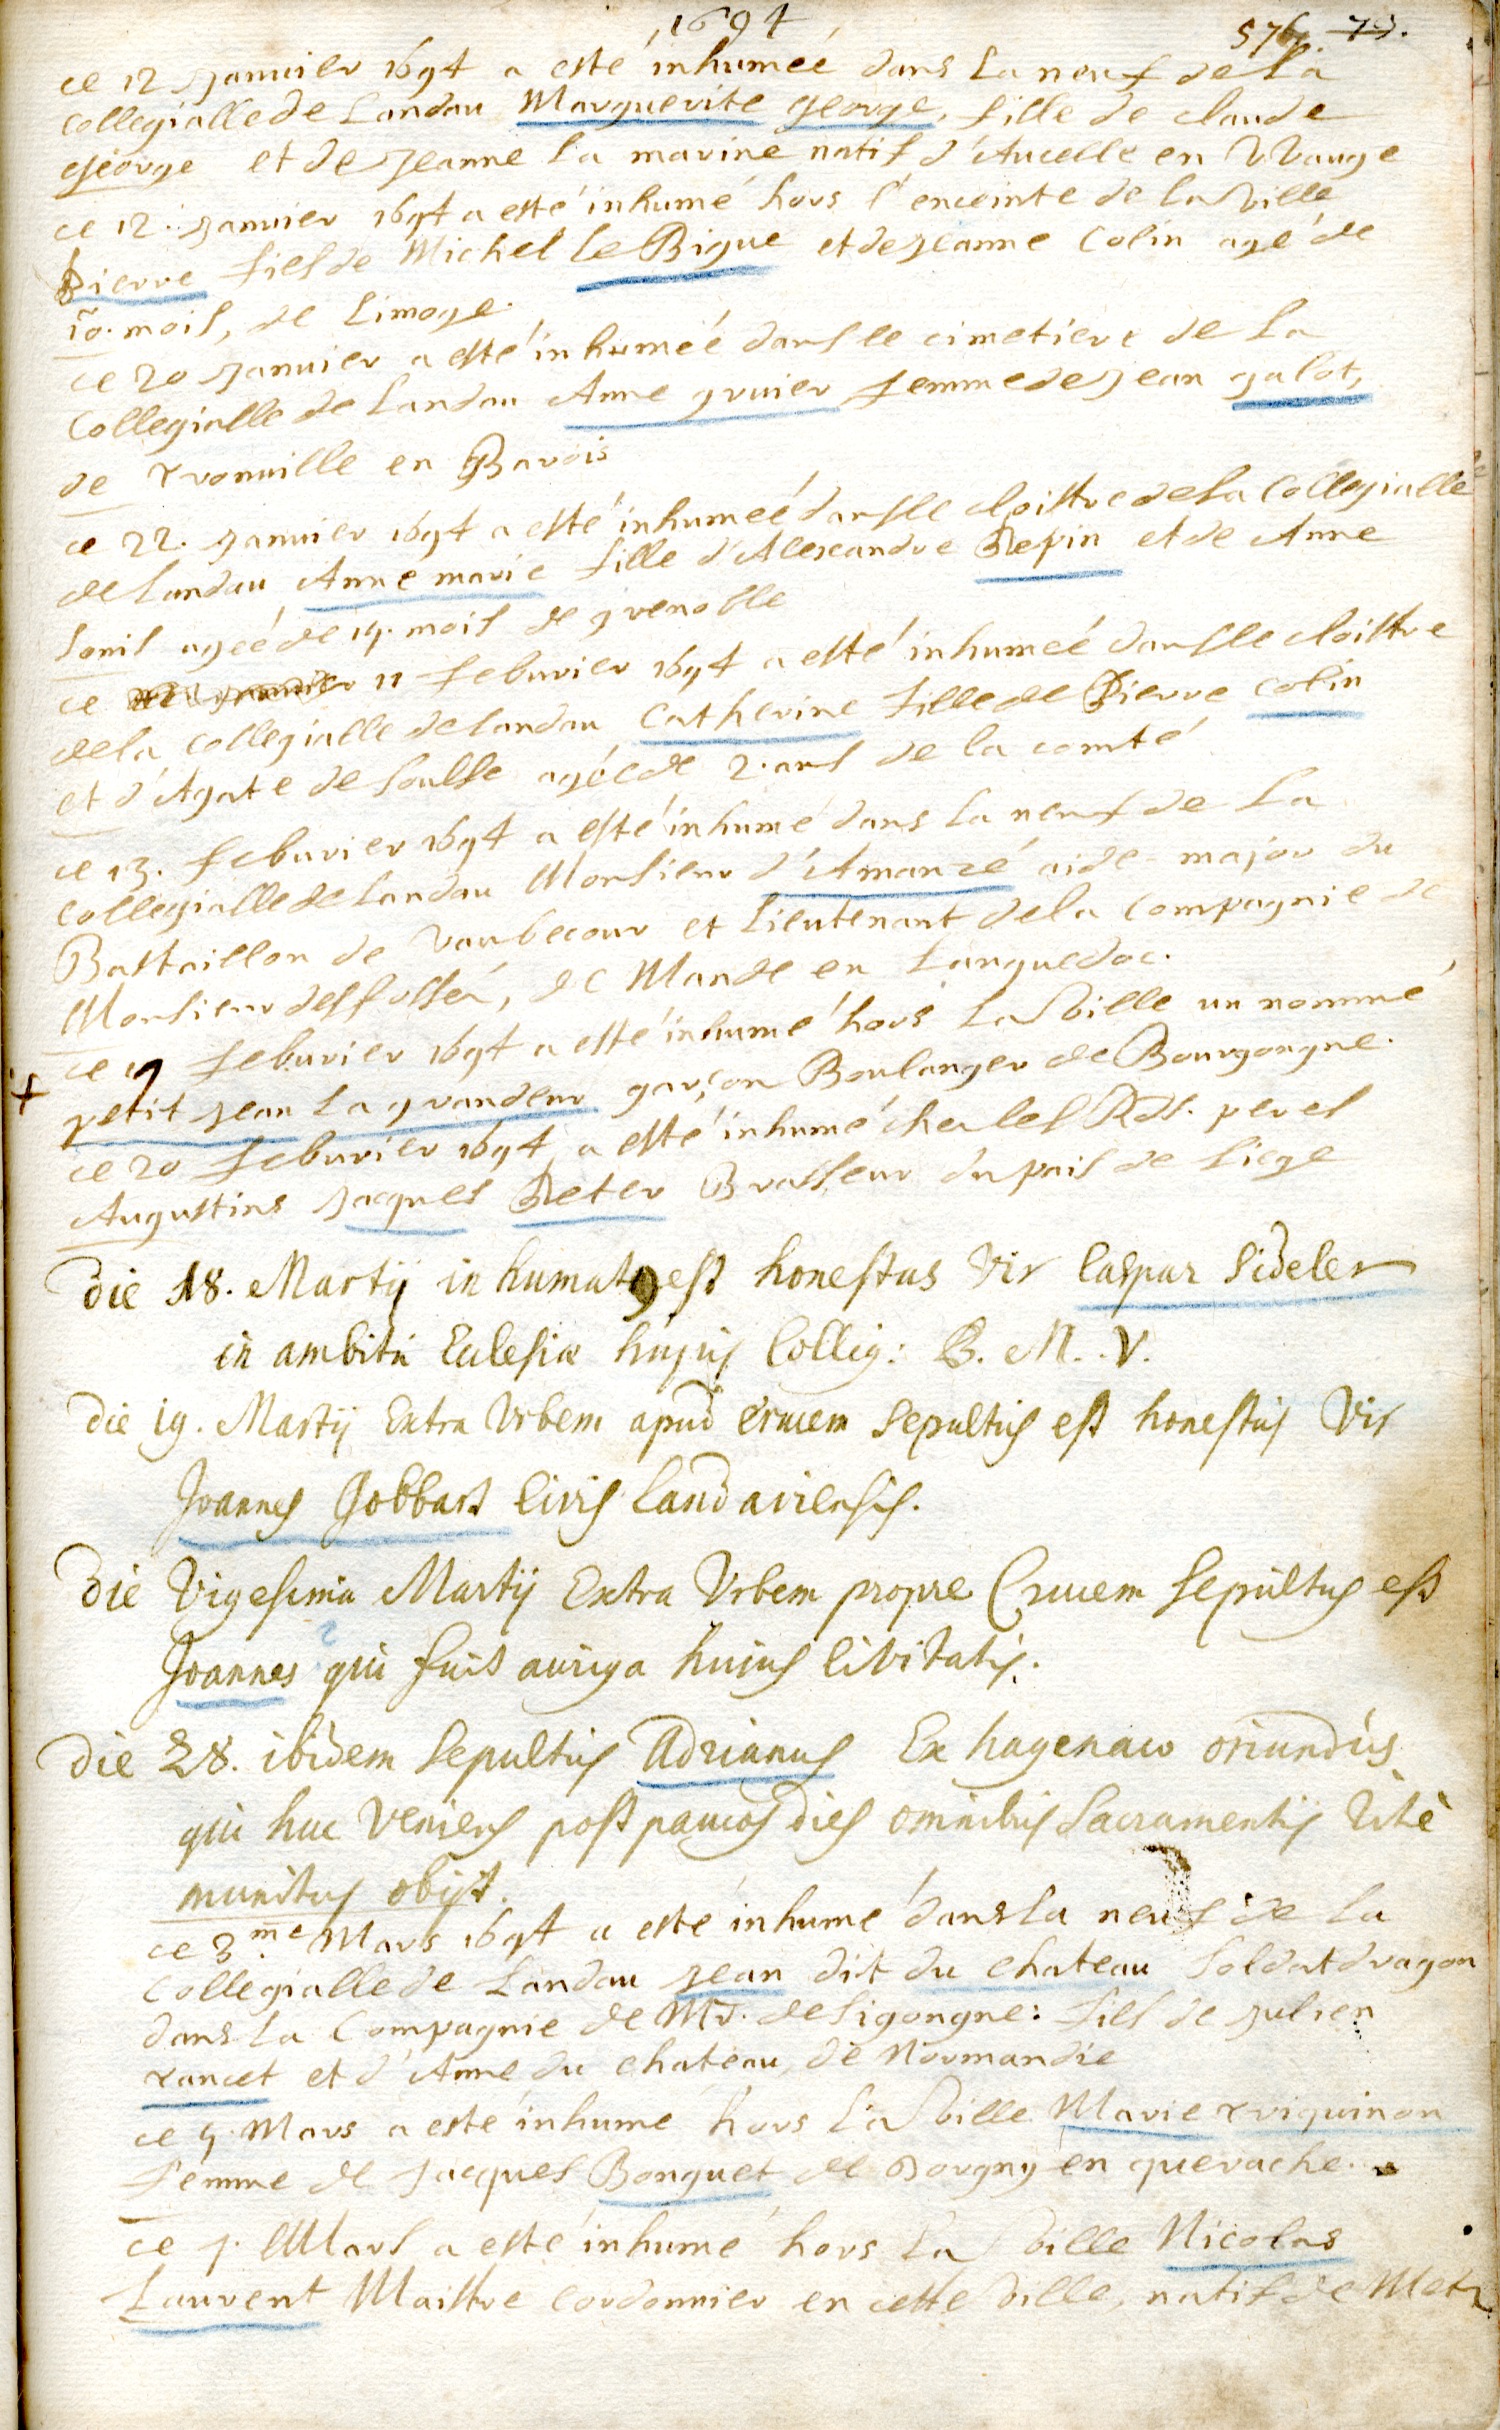 1694
576. 75.
ce 12 Januier 1694 a esté inhumeé dans la neuf de la
Collegialle de Landau Marguerite George, fille de claude
George et de Jeanne la marine natif d'Aucelle en VVauge
ce 12. Januier 1694 a esté inhumé hors l'enceinte de la Ville
Pierre fils de Michel le Bigue et de Jeanne Colin agé de
10. mois, de Limoge.
ce 20 Januier a esté inhumeé dans le cimetiere de la
Collegialle de Landau Anne gruier femme de Jean galot,
de rronuille en Barois
ce 22. Januier 1694 a esté inhumeé dans le cloistre de la Collegialle
de Landau Anne marie fille d'Alexandre Repin et de Anne
Sonis ageé de 14. mois de grenoble
ce 11 feburier 1694 a esté inhumeé dans le cloistre
de la Collegialle de Landau Catherine fille de Pierre Colin
et d'Agate de Soulse agée de 2. ans de la comté
ce 13. feburier 1694 a esté inhumé dans la neuf de la
Collegialle de Landau Monsieur d'Amanzé aide-major du
Bastaillon de Vaubecour et Lieutenant de la Compagnie de
Monsieur desfossés, de Mande en Languedoc.
ce 19 feburier 1694 a esté inhumé hors la Ville un nommé
petit Jean la grandeur garçon Boulanger de Bourgongne.
ce 20 feburier 1694 a esté inhumé ches les Rds. peres
Augustins Jacques Reter Brasseur du pais de Liege
Die 18. Martij inhumatq est honestus Vir Caspar Sideler
in ambitu Eclesiæ hujus Colleg: B. M. V.
Die 19. Martij Extra Vrbem apud crucem sepultus est honestus Vir
Joannes Gobbart Civis Landaviensis.
Die Vigesima Martij Extra Vrbem propre Crucem sepultus est
Joannes ? qui fuit auriga hujus Civitatis.
Die 28. ibidem sepultus Adrianus Ex hagenaw oriundus
qui huc veniens post paucos dies omnibus Sacramentis ritè
munitus obijt.
ce 3me Mars 1694 a esté inhumé dans la neuf de la
Collegialle de Landau Jean dit du chateau Soldat dragon
dans la Compagnie de Mr. de Sigongne: fils de Julien
rancet et d'Anne du chateau, de Normandie
ce 4 Mars a esté inhumé hors la Ville Marie rriquinon
femme de Jacques Bonguet de Dorgny en querache.
ce 7. Mars a esté inhumé hors la Ville Nicolas
Laurent Maistre Cordonnier en cette Ville, natif de Metz